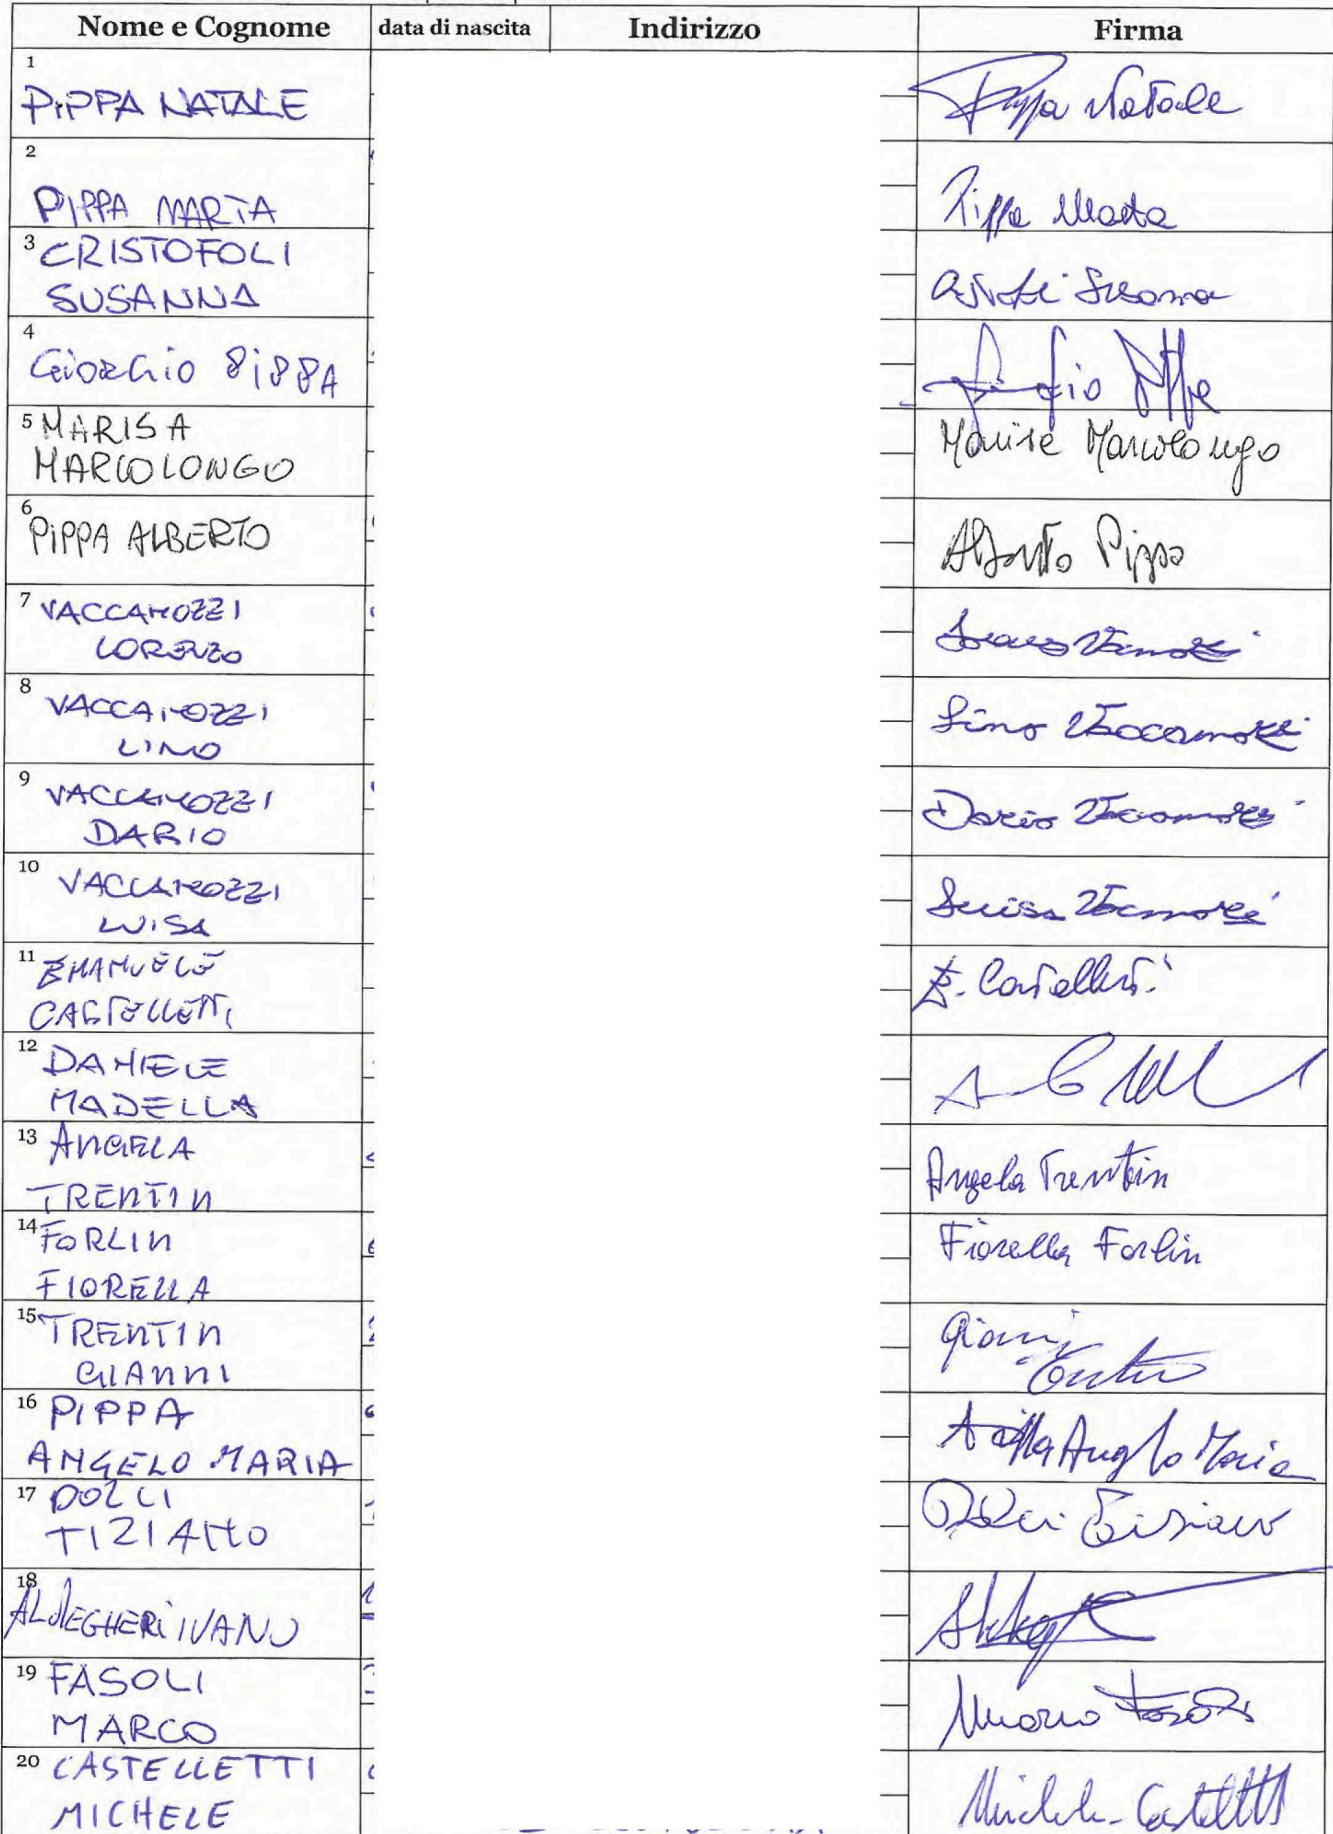 Nome e Cognome data di nascita Indirizzo Firma
1
PIPPA NATALE Pippa Natale
2
PIPPA MARTA Pippa Marta
3 CRISTOFOLI
SUSANNA Susanna
4
GIORGIO PIPPA
5 MARISA
MARCOLONGO Marisa Marcolongo
6
PIPPA ALBERTO Alberto Pippa
7 VACCAMOZZI
LORENZO
8
VACCAMOZZI Lino Vaccamozzi
LINO
9
VACCAMOZZI Dario
DARIO
10
VACCAMOZZI Luisa
LUISA
11 EMANUELE
CASTELLETTI E. Castelletti
12 DANIELE
MADELLA
13 ANGELA
TRENTIN Angela Trentin
14 FORLIN Fiorella Forlin
FIORELLA
15 TRENTIN Gianni
GIANNI
16 PIPPA
ANGELO MARIA Angelo Maria
17 DOLCI Dolci Tiziano
TIZIANO
18
ALDEGHERI IVANO
19 FASOLI
MARCO Marco Fasoli
20 CASTELLETTI
MICHELE Michele Castelletti